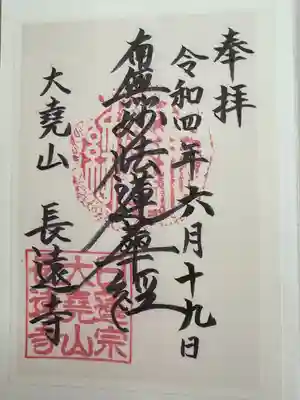 奉拝
令和四年六月十九日
南無妙法蓮華經
大堯山 長遠寺
日蓮宗
大堯山
長遠寺